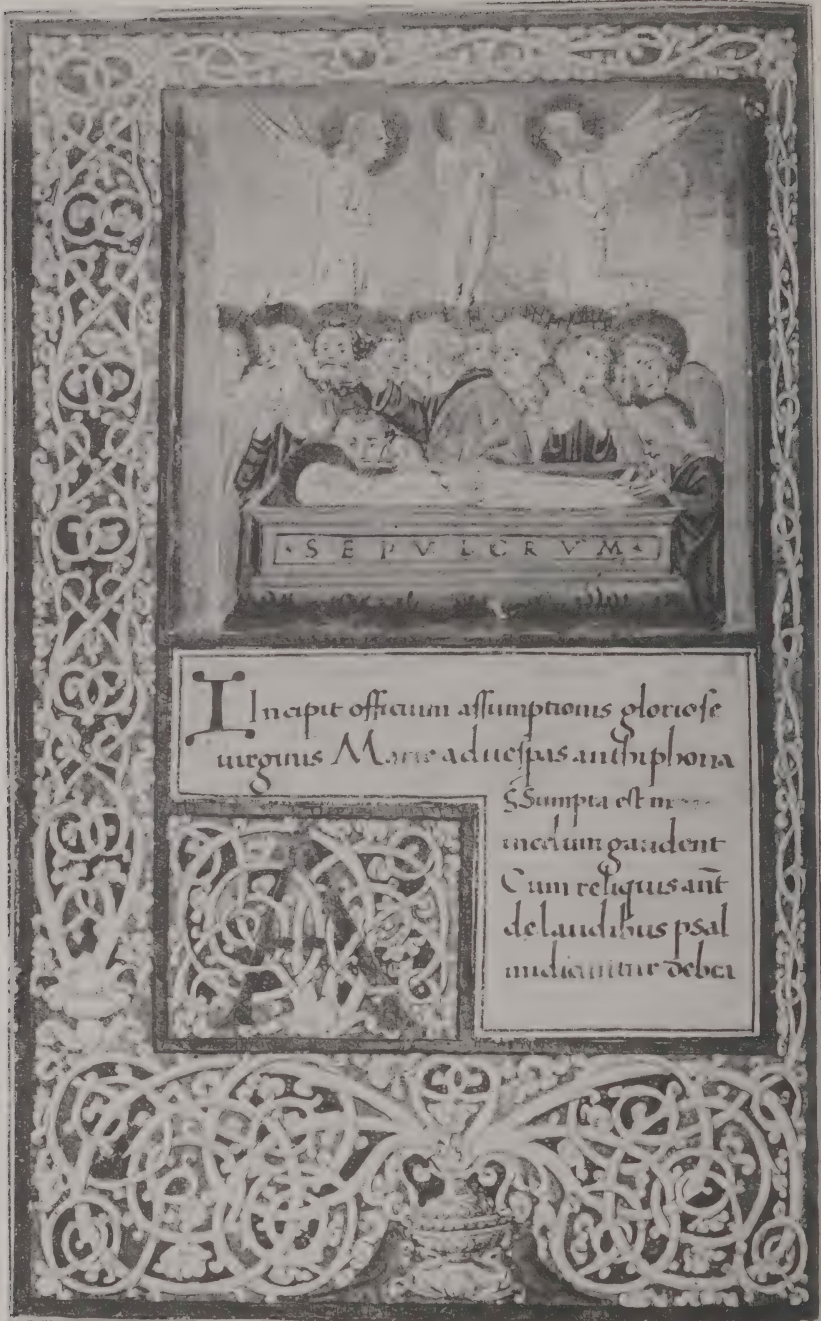 · S E P V L C R V M ·
Incipit officium assumptionis gloriose
uirginis Marie ad uespas anthiphona
ASSumpta est m
incelum gaudent
Cum reliquis ant̄
de laudibus psal
midicuntur debea